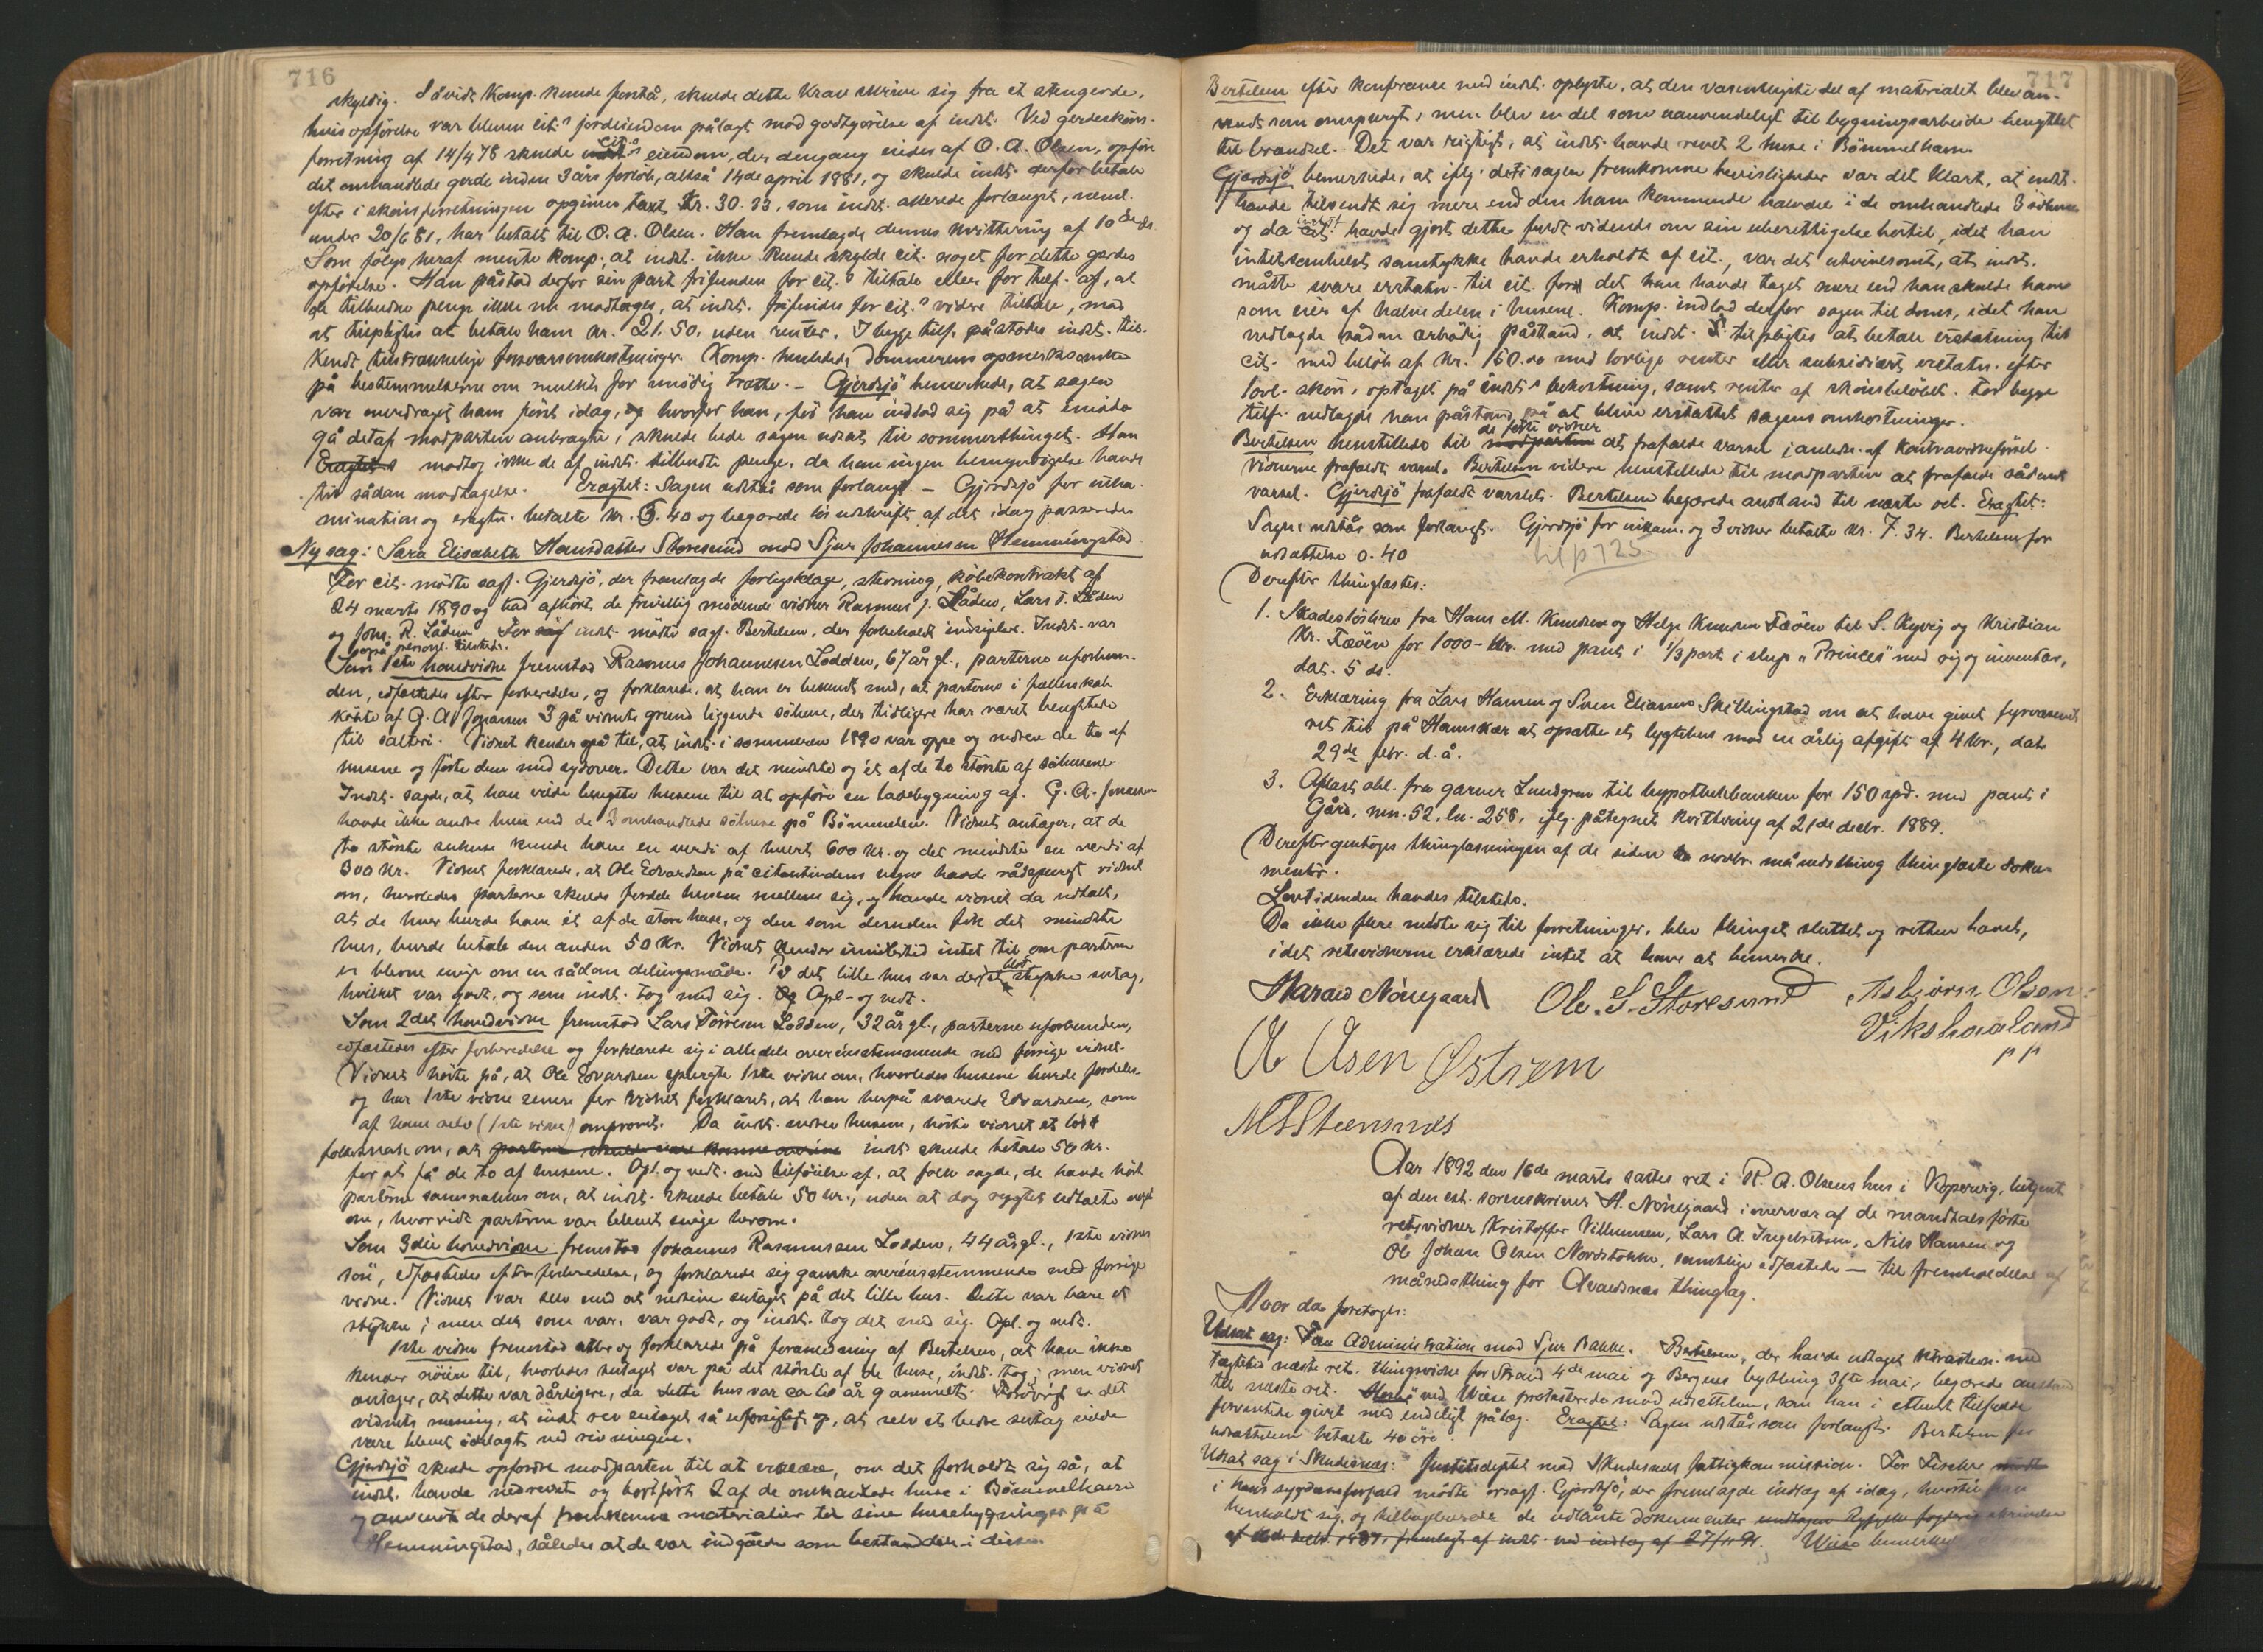 716
skyldig. Såvidt Komp. kunde forstå, skulde dette krav skrive sig fra et stengerde,
hvis opførelse var bleven cit.s jordeiendom pålagt mod godtgjørelse af indst. Ved gerdeskjøns-
forretning af 14/4 78 skulde cit.s eiendom, der dengang eiedes af O. A. Olsen, opføre
det omhandlede gerde inden 3 års forløb, altså 14de april 1881, og skulde indst. derfor betale
efter i skjønsforretningen opgiven taxt Kr. 30.33, som indst. allerede forlængst, neml.
under 20/6 81, har betalt til O. A. Olsen. Han fremlagde dennes kvittering af 10de ds.
Som følge heraf mente komp. at indst. ikke kunde skylde cit. noget for dette gerdes
opførelse. Han påstod derfor sin part frifunden for cit.s tiltale eller for tilf. af, at
de tilbudne penge ikke nu modtages, at indst. frifindes for cit.s videre tiltale, mod
at tilpligtes at betale ham Kr. 21.50, uden renter. I begge tilf. påstodes indst. til-
kjendt tilstrækkelige forsvarsomkostninger. Komp. henledede dommerens opmerksomhed
på bestemmelserne om mulkt for unødig trætte. – Gjerdsjö bemerkede, at sagen
var overdraget ham først idag, og hvorfor han, før han indlod sig på at imøde-
gå det af modparten anbragte, skulde bede sagen udsat til sommerthinget. Han
modtog ikke de af indst. tilbudte penge, da han ingen bemyndigelse havde
til sådan modtagelse. Eragtet: Sagen udstår som forlangt. – Gjerdsjö for exa-
mination og eragtn. betalte Kr. 5.40 og begjærede løs udskrift af det idag passerede.
Ny sag: Sara Elisabeth Hansdatter Storesund mod Sjur Johannesen Hemmingstad.
For cit. mødte sagf. Gjerdsjö, der fremlagde forligsklage, stevning, købekontrakt af
24 marts 1890 og bad afhørt de frivillig mødende vidner Rasmus J. Låden, Lars T. Låden
og Johs. R. Låden. For indst. mødte sagf. Bertelsen, der forbeholdt indsigelser. Indst. var
også personl. tilstede.
Som 1ste hovedvidne fremstod Rasmus Johannesen Lodden, 67 år gl., parterne uforbun-
den, edfæstedes efter forberedelse, og forklarede, at han er bekendt med, at parterne i fællesskab
købte af G. A. Jonassen 3 på vidnets grund liggende søhuse, der tidligere har været benyttede
til salteri. Vidnet kender også til, at indst. i sommeren 1890 var oppe og nedrev de to af
husene og førte dem med sydover. Dette var det mindste og ét af de to største af søhusene.
Indst. sagde, at han vilde benytte husene til at opføre en ladebygning af. G. A. Jonassen
havde ikke andre huse end de 3 omhandlede søhuse på Bømmelen. Vidnet antager, at de
to største søhuse kunde have en verdi af hvert 600 Kr. og det mindste en verdi af
300 Kr. Vidnet forklarede, at Ole Edvardsen på citantindens vegne havde rådspurgt vidnet
om, hvorledes parterne skulde fordele husene mellem sig, og havde vidnet da udtalt,
at de hver burde have ét af de store huse, og den som desuden fik det mindste
hus, burde betale den anden 50 Kr. Vidnet kender imidlertid intet til om parterne
er blevne enige om en sådan delingsmåde. På det lille hus var der blot et stykke sutag,
hvilket var godt, og som indst. tog med sig. Opl. og vedt.
Som 2det hovedvidne fremstod Lars Tørresen Lodden, 32 år gl., parterne uforbunden,
edfæstedes efter forberedelse og forklarede sig i alle dele overensstemmende med forrige vidne.
Vidnet hørte på, at Ole Edvardsen spurgte 1ste vidne om, hvorledes husene burde fordeles
og har 1ste vidne senere for vidnet forklaret, at han herpå svarede Edvardsen, som
af ham selv (1ste vidne) omprovet. Da indst. nedrev husene, hørte vidnet et løst
folkesnak om, at indst. skulde betale 50 Kr.
for at få de to af husene. Opl. og vedt. med tilføielse af, at folk sagde, de havde hørt
parterne samsnakkes om, at indst. skulde betale 50 Kr., uden at dog rygtet udtalte noget
om, hvorvidt parterne var blevet enige herom.
Som 3die hovedvidne fremstod Johannes Rasmussen Lodden, 44 år gl., 1ste vidnes
søn, edfæstedes efter forberedelse, og forklarede sig ganske overensstemmende med forrige
vidne. Vidnet var selv med at nedrive sutaget på det lille hus. Dette var bare et
stykke; men det som var, var godt, og indst. tog det med sig. Opl. og vedt.
1ste vidne fremstod atter og forklarede på foranledning af Bertelsen, at han ikke
kender nøiere til, hvorledes sutaget var på det største af de huse, indst. tog; men vidnet
antager, at dette var dårligere, da dette hus var ca 60 år gammelt. Forøvrigt er det
vidnets mening, at indst. rev sutaget så uforsigtigt op, at selv et bedre sutag vilde
være blevet ødelagt ved rivningen.
Gjerdsjö skulde opfordre modparten til at erklære, om det forholdt sig så, at
indst. havde nedrevet og bortført 2 af de omhandlede huse i Bømmelhavn
og anvendt de deraf fremkomne materialier til sine husebygninger på
Hemmingstad, således at de var indgåede som bestanddele i disse.
717
Bertelsen efter konference med indst. oplyste, at den væsentligste del af materialet blev an-
vendt som ompurgt, men blev en del som uanvendeligt til bygningsarbeide benyttet
til brændsel. Det var rigtigt, at indst. havde revet 2 huse i Bömmelhavn.
Gjerdsjö bemerkede, at iflg. det i sagen fremkomne bevisligheder var det klart, at indst.
havde tilvendt sig mere end den ham kommende halvdel i de omhandlede 3 søhuse
og da indst. havde gjort dette fuldt vidende om sin uberettigelse hertil, idet han
intetsomhelst samtykke havde erholdt af cit., var det utvivlsomt, at indst.
måtte svare erstatn. til cit. for det han havde taget mere end han skulde have
som eier af halvedelen i husene. Komp. indlod derfor sagen til doms, idet han
nedlagde sådan ærbødig påstand, at indst. tilpligtes at betale erstatning til
cit. med beløb af Kr. 150.00 med lovlige renter eller subsidiært erstatn. efter
lovl. skøn, optaget på indst.s bekostning, samt renter af skønsbeløbet. For begge
tilf. nedlagde han påstand på at blive erstattet sagens omkostninger.
Bertelsen henstillede til de førte vidner at frafalde varsel i anledn. af kontravidneførsel.
Vidnerne frafaldt varsel. Bertelsen videre henstillede til modparten at frafalde sådant
varsel. Gjerdsjö frafaldt varslet. Bertelsen begjærede anstand til næste ret. Eragtet:
Sagen udstår som forlangt. Gjerdsjö for exam. og 3 vidner betalte Kr. 7.34. Bertelsen for
udsættelse 0.40
til p 725
Derefter thinglæstes:
1. Skadesløsbrev fra Hans M. Knudsen og Helge Knudsen Fæöen til S. Kyvig og Kristian
Kr. Fæöen for 1000 – Kr. med pant i 1/3 part i slup „Princes” med rig og inventar,
dat. 5 ds.
2. Erklæring fra Lars Hansen og Sven Eliassen Skillingstad om at have givet fyrvæsenet
ret til på Hamskær at opsætte et lygtehus mod en årlig afgift af 4 Kr., dat.
29de febr. d. å.
3. Aflæst obl. fra garver Lundgren til hypothekbanken for 150 spd. med pant i
Gård, mn. 52, ln. 258, iflg. påtegnet kvittering af 21de decbr. 1889.
Derefter gentoges thinglæsningen af de siden novbr. månedsthing thinglæste doku-
menter.
Lovtidenden havdes tilstede.
Da ikke flere meldte sig til forretninger, blev thinget sluttet og retten hævet,
idet retsvidnerne erklærede intet at have at bemerke.
Harald Nörregaard Ole. S. Storesund Asbjørn Olsen
Vikshåland
A Asen Østrem
pp
M T Steensnes
Aar 1892 den 16de marts sattes ret i R. A. Olsens hus i Kopervig, betjent
af den est. sorenskriver H. Nörregaard i overvær af de mandtalsførte
retsvidner Kristoffer Villumsen, Lars A. Ingebretsen, Nils Hansen og
Ole Johan Olsen Nordstokke, samtlige edfæstede – til fremholdelse af
månedsthing for Avaldsnes thinglag.
Hvor da foretoges:
Udsat sag: Administration mod Sjur Bakke. Bertelsen, der havde udtaget med
tægtetid næste ret. thingsvidne for Strand 4de mai og Bergens bything 31te mai, begjærede anstand
til næste ret. ved Wiese protesterede mod udsættelsen, som han i ethvert tilfælde
forventede givet med endeligt pålæg. Eragtet: Sagen udstår som forlangt. Bertelsen for
udsættelsen betalte 40 öre.
Udsat sag i Skudesnes: Justitsdeptet mod Skudesnes fattigkommission. For Fischer
i hans sygdomsforfald mødte Gjerdsjö, der fremlagde indlæg af idag, hvortil han
henholdt sig, og tilbageleverede de udlånte dokumenter
Wiese bemerkede